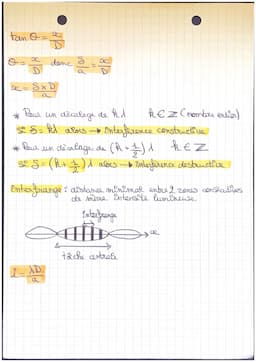 tan θ = x/D
θ = x/D donc δ/a = x/D
x = δ x D/a
* Pour un décalage de kλ k ∈ Z (nombre entier)
si δ = kλ alors → Interférence constructive
* Pour un décalage de (k+1/2) λ k ∈ Z
si δ = (k+1/2) λ alors → interférence destructive
Interfrange : distance minimal entre 2 zones consécutives
de même Intensité lumineuse.
Interfrange
x
tâche centrale
i = λD/a